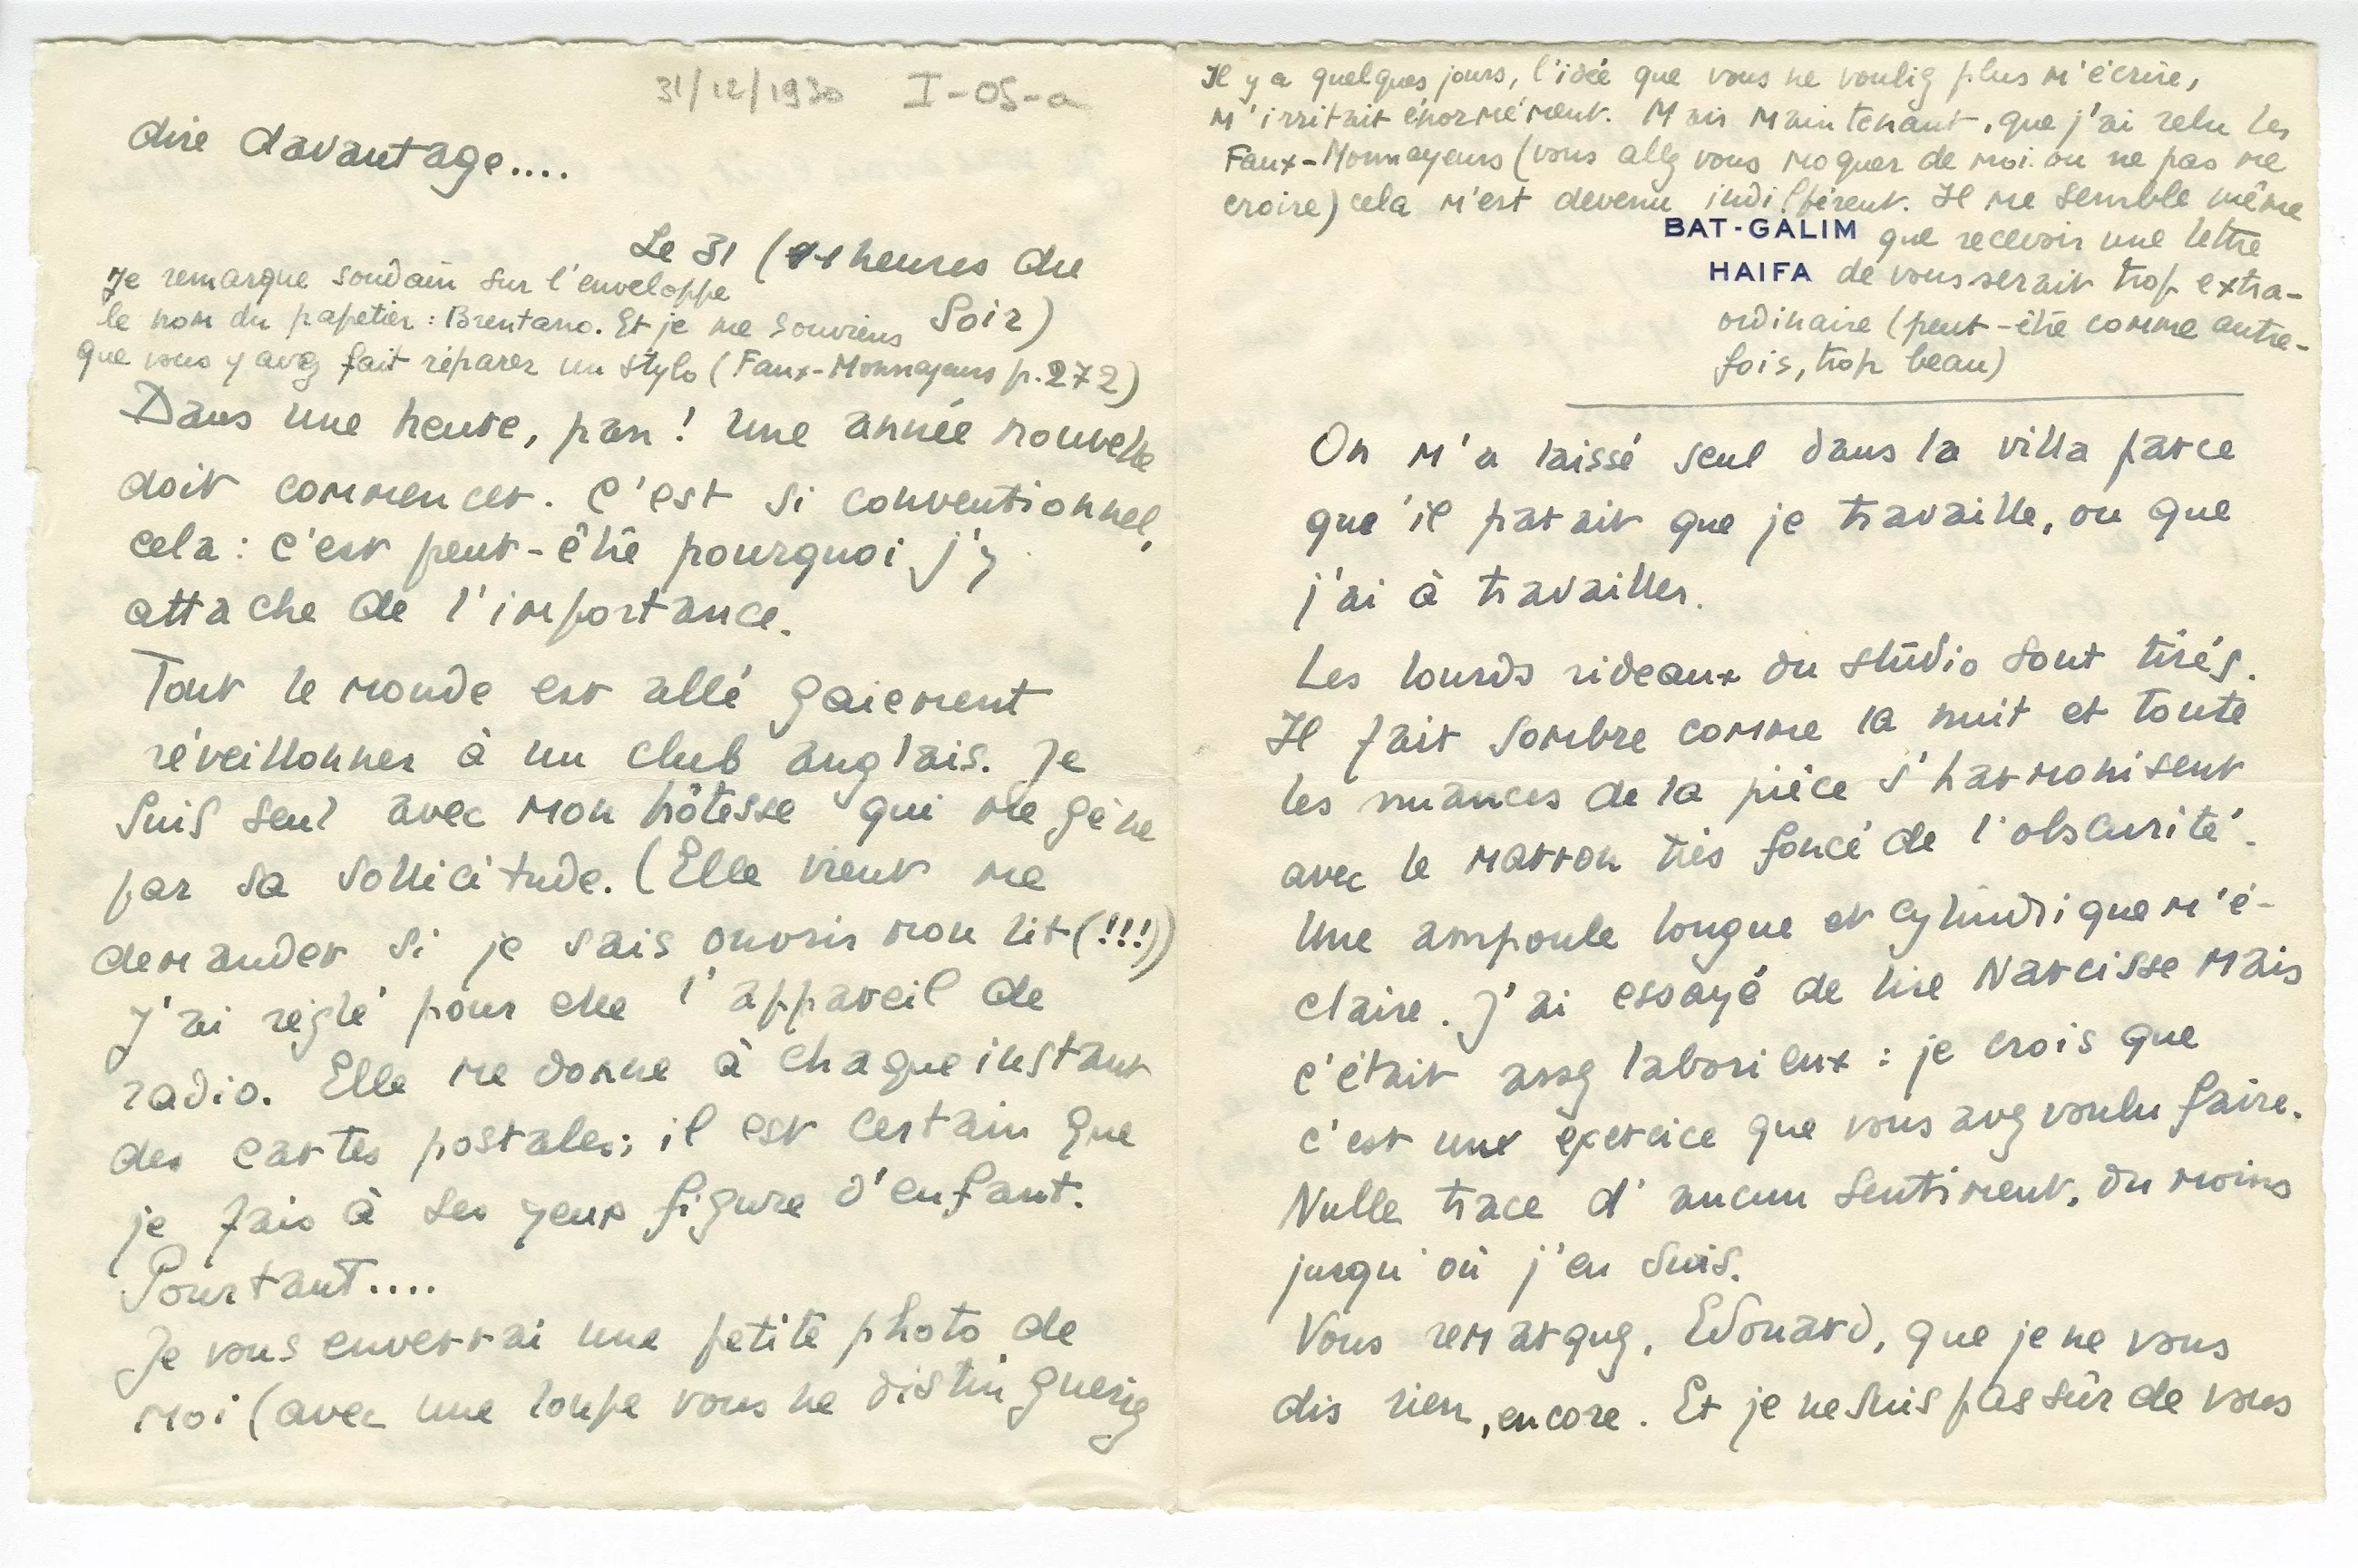 31/12/1930 I-05-a
dire davantage....
Le 31 (11 heures du
Soir)
Je remarque soudain sur l'enveloppe
le nom du papetier : Brentano. Et je me souviens
que vous y avez fait réparer un stylo (Faux-Monnayeurs p.272)
Dans une heure, pan ! Une année nouvelle
doit commencer. C'est si conventionnel,
cela : c'est peut-être pourquoi j'y
attache de l'importance.
Tout le monde est allé gaiement
réveillonner à un club anglais. Je
suis seul avec mon hôtesse qui me gène
par sa sollicitude. (Elle vient me
demander si je sais ouvrir mon lit (!!!))
J'ai réglé pour elle l'appareil de
radio. Elle me donne à chaque instant
des cartes postales; il est certain que
je fais à ses yeux figure d'enfant.
Pourtant....
Je vous enverrai une petite photo de
moi (avec une loupe vous ne distinguerez
Il y a quelques jours, l'idée que vous ne vouliez plus m'écrire,
m'irritait énormément. Mais maintenant, que j'ai relu les
Faux-Monnayeurs (vous allez vous moquer de moi ou ne pas me
croire) cela m'est devenu indifférent. Il me semble même
BAT-GALIM que recevoir une lettre
HAIFA de vous serait trop extra-
ordinaire (peut-être comme autre-
fois, trop beau)
On m'a laissé seul dans la villa parce
que'il parait que je travaille, ou que
j'ai à travailler.
Les lourds rideaux du stúdio sont tirés.
Il fait sombre comme la nuit et toute
les nuances de la pièce s'harmonisent
avec le marron très foncé de l'obscurité.
Une ampoule longue et cylindrique m'é-
claire. J'ai essayé de lire Narcisse mais
c'était assez laborieux : je crois que
c'est un exercice que vous avez voulu faire.
Nulle trace d'aucun sentiment, du moins
jusqu'où j'en suis.
Vous remarquez, Edouard, que je ne vous
dis rien, encore. Et je ne suis pas sûr de vous